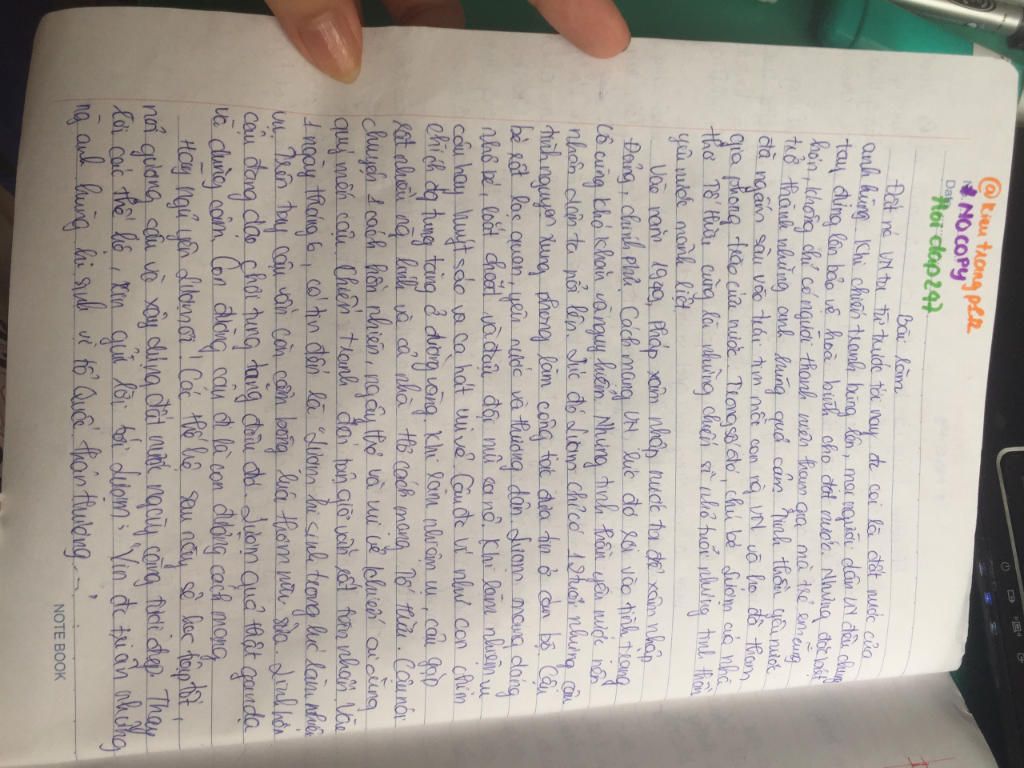 @Kieu trang pCR
* NO COPY
Hoi dap 247
Bài làm:
Đất nc VN ta từ trước tới nay đc coi là đất nước của
anh hùng. Khi chiến tranh bùng lên, mọi người dân VN đều chung
tay đứng lên bảo vệ hoà bình cho đất nước. Nhưng đặc biệt
hơn, không chỉ có người thanh niên tham gia mà trẻ em cũng
trở thành những anh hùng quả cảm. Tinh thần yêu nước
đã ngấm sâu vào trái tim mỗi con ng VN và họ đã tham
gia phong trào cứu nước. Trong số đó, chú bé Lượm và nhà
thơ Tố Hữu cũng là những chiến sĩ nhỏ tuổi nhưng tinh thần
yêu nước mãnh liệt
Vào năm 1949, Pháp xâm nhập nước ta để xâm nhập
Đảng, chính phủ Cách mạng VN lúc đó rơi vào tình trạng
vô cùng khó khăn và nguy hiểm. Nhưng tinh thần yêu nước nên
nhân dân ta nổi lên. Lúc đó Lượm chỉ có 12 tuổi nhưng cậu
tình nguyện xung phong làm công tác đưa tin ở cán bộ. Cậu
bé rất lạc quan, yêu nước và thương dân. Lượm mang dáng
nhỏ bé, loắt choắt và đầu đội mũ ca nô. Khi làm nhiệm vụ
cậu hay huýt sáo và ca hát vui vẻ. Cậu đc ví như con chim
chích đg tung tăng ở đường vàng. Khi làm nhiệm vụ, cậu gặp
rất nhiều ng lính và cả nhà thơ cách mạng Tố Hữu. Cậu nói
chuyện 1 cách hồn nhiên, ngây thơ và vui vẻ khiến ai cũng
quý mến cậu. Chiến tranh đến bây giờ vẫn rất tàn nhẫn. Vào
1 ngày tháng 6, có tin đến là Lượm hi sinh trong lúc làm nhiệm
vụ. Trên tay cậu vẫn còn cầm bông lúa thơm mùi sữa. Linh hồn
cậu đang dạo chơi tung tăng đâu đó. Lượm quả thật gan dạ
và dũng cảm. Con đường cậu đi là con đường cách mạng.
Hãy ngủ yên Lượm ơi! Các thế hệ sau này sẽ học tập tốt,
nối gương cậu và xây dựng đất nước ngày càng tươi đẹp. Thay
lời các thế hệ, xin gửi lời tới Lượm: "Xin đc tri ân những
ng anh hùng hi sinh vì tổ quốc thân thương..."
NOTEBOOK